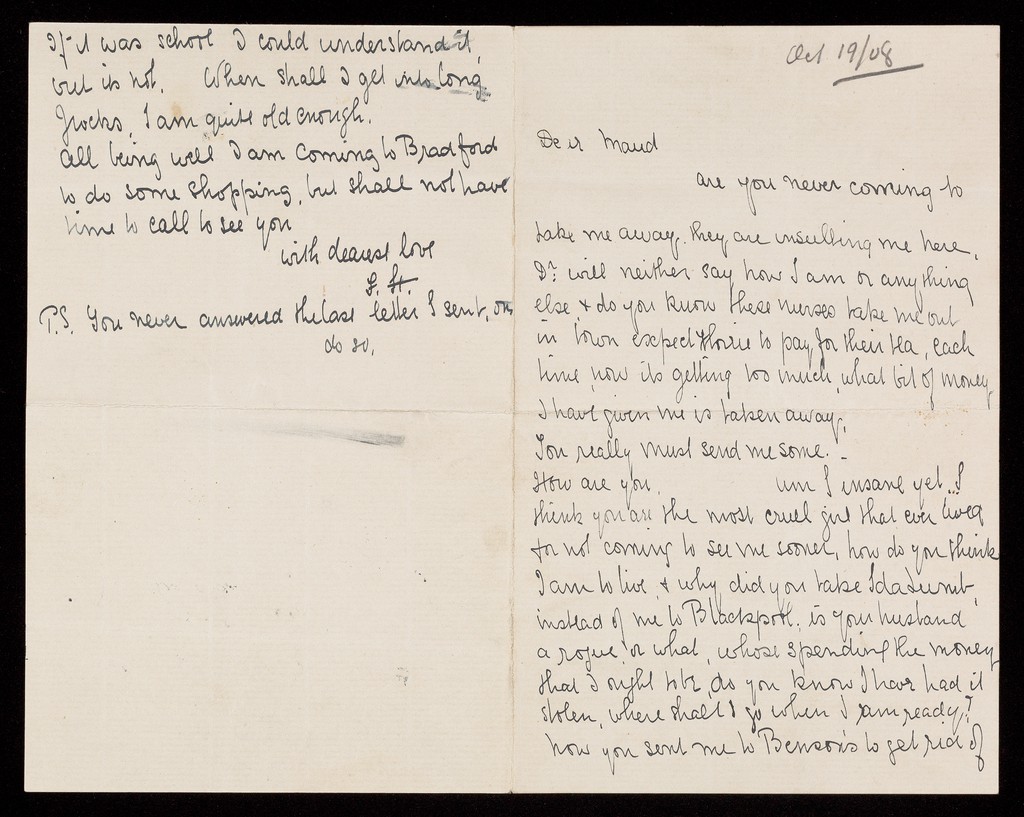 Oct 19/08
Dear Maud
are you never coming to
take me away. they are insulting me here,
Dr. will neither say how I am or anything
else & do you know these nurses take me out
in town expect Florrie to pay for their tea, each
time, now its getting too much, what bit of money
I have given me is taken away,
You really must send me some. _
How are you. am I insane yet.. I
think you are the most cruel girl that ever lived
for not coming to see me sooner, how do you think
I am to live, & why did you take Ida
instead of me to Blackpool, is your husband
a rogue, or what, whose spending the money
that I ought to be, do you know I have had it
stolen, where shall I go when I am ready?
how you sent me to Benson's to get rid of
If it was school I could understand it,
but its not. When shall I get into long
frocks, I am quite old enough.
All being well I am coming to Bradford
to do some shopping, but shall not have
time to call to see you
with dearest love
P.S. You never answered the last letter I sent,
do so.